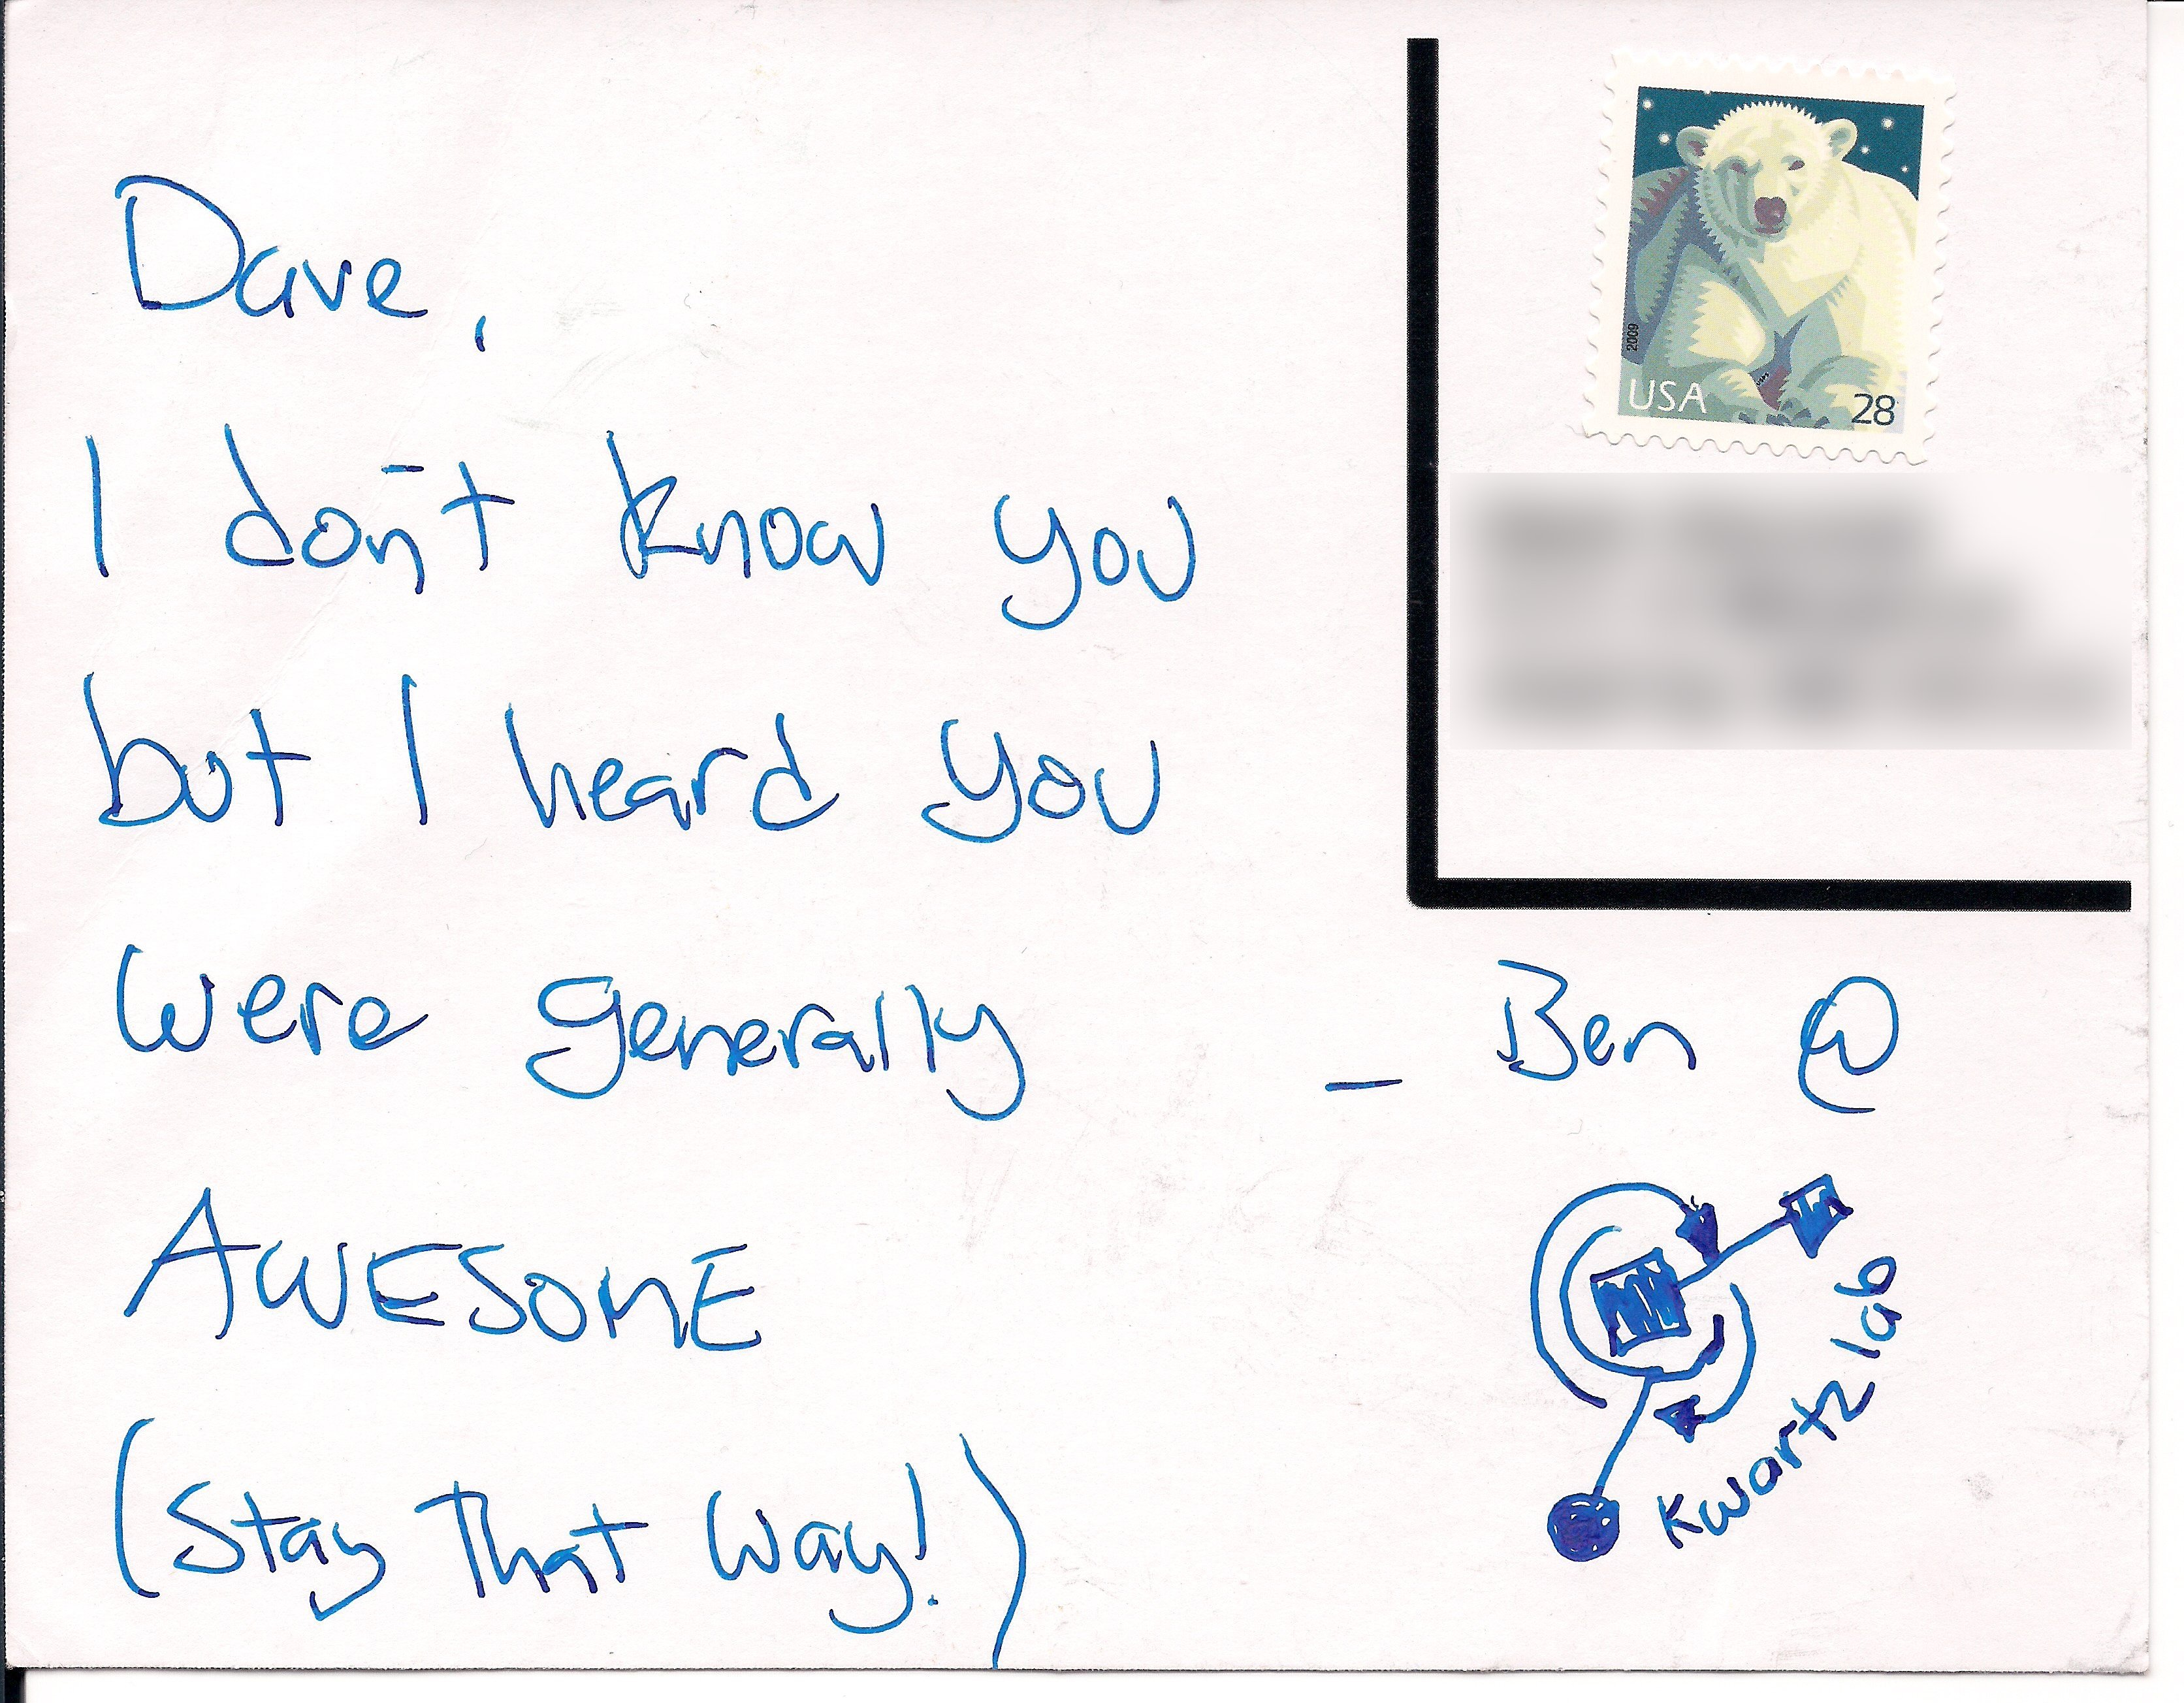 Dave,
I don't know you
but I heard you
were generally
AWESOME
(Stay That Way!)
2009
USA 28
- Ben @
Kwartzlab